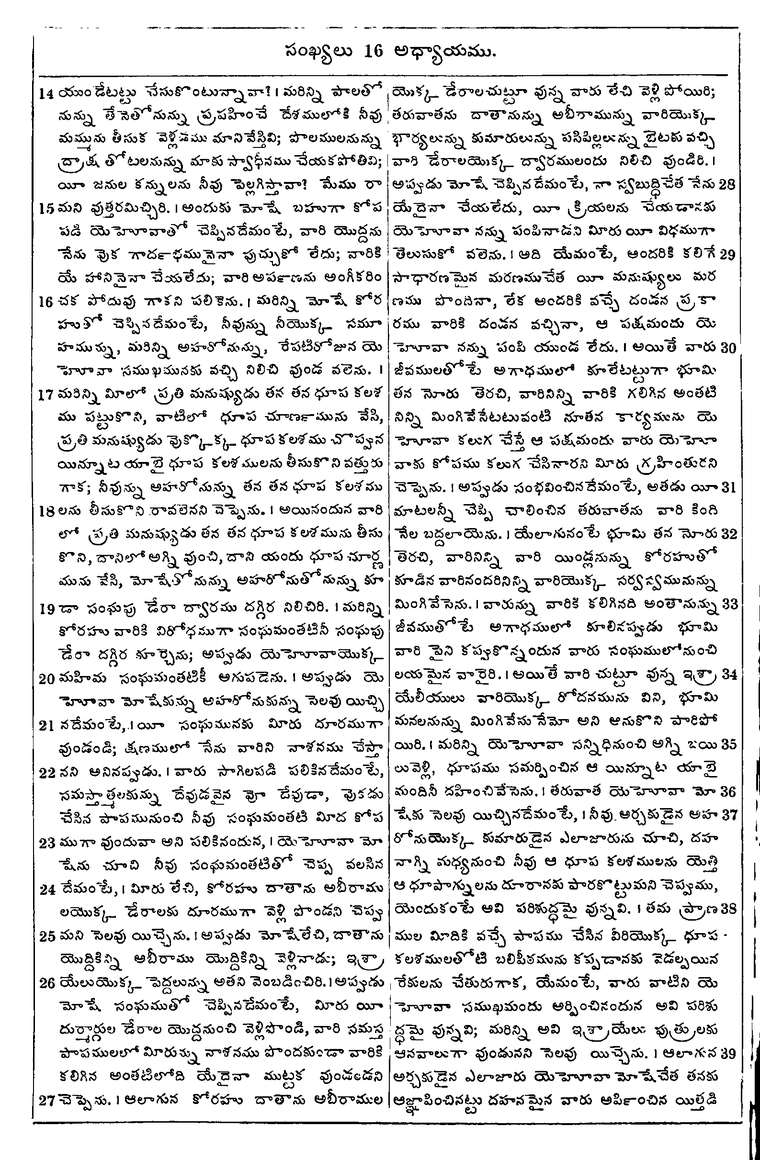 సంఖ్యలు 16 అధ్యాయము.
14 యుండేటట్టు చేసుకొంటున్నావా? । మరిన్ని పాలతో
నున్ను తేనెతోనున్ను ప్రవహించే దేశములోకి నీవు
మమ్మును తీసుక వెళ్లడము మానివేస్తివి; పొలములనున్ను
ద్రాక్ష తోటలనున్ను మాకు స్వాధీనము చేయకపోతివి;
యీ జనుల కన్నులను నీవు పెల్లగిస్తావా? మేము రా
15 మని వుత్తరమిచ్చిరి. । అందుకు మోషే బహుగా కోప
పడి యెహోవాతో చెప్పినదేమంటే, వారి యొద్దను
నేను వొక గాదకాధమునైనా పుచ్చుకో లేదు; వారికి
యే హానినైనా చేయలేదు; వారి అపకాణను అంగీకరిం
16 చక పోదువు గాకని పలికెను. । మరిన్ని మోషే కోర
హుతో చెప్పినదేమంటే, నీవున్ను నీయొక్క సమూ
హమున్ను, మరిన్ని అహరోనున్ను, రేపటిరోజున యె
హోవా సముఖమునకు వచ్చి నిలిచి వుండ వలెను. ।
17 మరిన్ని మీలో ప్రతి మనుష్యుడు తన తన ధూప కలశ
ము పట్టుకొని, వాటిలో ధూప చూణకామును వేసి,
ప్రతి మనుష్యుడు వొక్కొక్క ధూప కలశము చొప్పున
యిన్నూట యాభై ధూప కలశములను తీసుకొని వత్తురు
గాక; నీవున్ను అహరోనున్ను తన తన ధూప కలశము
18 లను తీసుకొని రావలెనని చెప్పెను. । అయినందున వారి
లో ప్రతి మనుష్యుడు తన తన ధూప కలశమును తీసు
కొని, దానిలో అగ్ని వుంచి, దాని యందు ధూప చూర్ణ
మును వేసి, మోషేతోనున్ను అహరోనుతోనున్ను కూ
19 డా సంఘపు డేరా ద్వారము దగ్గిర నిలిచిరి. । మరిన్ని
కోరహు వారికి విరోధముగా సంఘమంతటినీ సంఘపు
డేరా దగ్గిర కూర్చెను; అప్పుడు యెహోవాయొక్క
20 మహిమ సంఘమంతటికీ అగుపడెను. । అప్పుడు యె
హోవా మోషేకున్ను అహరోనుకున్ను సెలవు యిచ్చి
21 నదేమంటే, । యీ సంఘమునకు మీరు దూరముగా
వుండండి; క్షణములో నేను వారిని నాశనము చేస్తా
22 నని అనినప్పుడు. । వారు సాగిలపడి పలికినదేమంటే,
సమస్తాత్మలకున్ను దేవుడవైన వో దేవుడా, వొకడు
చేసిన పాపమునుంచి నీవు సంఘమంతటి మీద కోప
23 ముగా వుందువా అని పలికినందున, । యెహోవా మో
షేను చూచి నీవు సంఘమంతటితో చెప్ప వలసిన
24 దేమంటే, । మీరు లేచి, కోరహు దాతాను అబీరాము
లయొక్క డేరాలకు దూరముగా వెళ్లి పొండని చెప్పు
25 మని సెలవు యిచ్చెను. । అప్పుడు మోషేలేచి, దాతాను
యొద్దికిన్ని అబీరాము యొద్దికిన్ని వెళ్లినాడు; ఇశ్రా
26 యేలుయొక్క పెద్దలున్ను అతని వెంబడించిరి. । అప్పుడు
మోషే సంఘముతో చెప్పినదేమంటే, మీరు యీ
దుర్మార్గుల డేరాల యొద్దనుంచి వెళ్లిపొండి, వారి సమస్త
పాపములలో మీరున్ను నాశనము పొందకుండా వారికి
కలిగిన అంతటిలోది యేదైనా ముట్టక వుండండని
27 చెప్పెను. । ఆలాగున కోరహు దాతాను అబీరాముల
యొక్క డేరాలచుట్టూ వున్న వారు లేచి వెళ్లి పోయిరి;
తరువాతను దాతానున్ను అబీరామున్ను వారియొక్క
భార్యలున్ను కుమారులున్ను పసిపిల్లలున్ను బైటకు వచ్చి
వారి డేరాలయొక్క ద్వారములందు నిలిచి వుండిరి. ।
అప్పుడు మోషే చెప్పినదేమంటే, నా స్వబుద్ధిచేత నేను 28
యేదైనా చేయలేదు, యీ క్రియలను చేయడానకు
యెహోవా నన్ను పంపినాడని మీరు యీ విధముగా
తెలుసుకో వలెను. । అది యేమంటే, అందరికి కలిగే 29
సాధారణమైన మరణముచేత యీ మనుష్యులు మర
ణము పొందినా, లేక అందరికి వచ్చే దండన ప్రకా
రము వారికి దండన వచ్చినా, ఆ పక్షమందు యె
హోవా నన్ను పంపి యుండ లేదు. । అయితే వారు 30
జీవములతోటే అగాధములో కూలేటట్టుగా భూమి
తన నోరు తెరచి, వారినిన్ని వారికి గలిగిన అంతటి
నిన్ని మింగివేసేటటువంటి నూతన కార్యమును యె
హోవా కలుగ చేస్తే ఆ పక్షమందు వారు యెహో
వాకు కోపము కలుగ చేసినారని మీరు గ్రహింతురని
చెప్పెను. । అప్పుడు సంభవించినదేమంటే, అతడు యీ 31
మాటలన్నీ చెప్పి చాలించిన తరువాతను వారి కింది
నేల బద్దలాయెను. । యేలాగునంటే భూమి తన నోరు 32
తెరచి, వారినిన్ని వారి యిండ్లనున్ను కోరహుతో
కూడిన వారినందరినిన్ని వారియొక్క సర్వస్వమునున్ను
మింగివేసెను. । వారున్ను వారికి కలిగినది అంతానున్ను 33
జీవముతోటే అగాధములో కూలినప్పుడు భూమి
వారి పైని కప్పుకొన్నందున వారు సంఘములోనుంచి
లయమైన వారైరి. । అయితే వారి చుట్టూ వున్న ఇశ్రా 34
యేలీయులు వారియొక్క రోదనమును విని, భూమి
మనలనున్ను మింగివేసునేమో అని అనుకొని పారిపో
యిరి. । మరిన్ని యెహోవా సన్నిధినుంచి అగ్ని బయి 35
లువెళ్లి, ధూపము సమర్పించిన ఆ యిన్నూట యాభై
మందినీ దహించివేసెను. । తరువాత యెహోవా మో 36
షేకు సెలవు యిచ్చినదేమంటే, । నీవు అర్చకుడైన అహ 37
రోనుయొక్క కుమారుడైన ఎలాజారును చూచి, దహ
నాగ్ని మధ్యనుంచి నీవు ఆ ధూప కలశములను యెత్తి
ఆ ధూపాగ్నులను దూరానకు పారకొట్టుమని చెప్పుము,
యెందుకంటే అవి పరిశుద్ధమై వున్నవి. । తమ ప్రాణ 38
ముల మీదికి వచ్చే పాపము చేసిన వీరియొక్క ధూప
కలశములతోటి బలిపీఠమును కప్పడానకు వెడల్పయిన
రేకులను చేతురుగాక, యేమంటే, వారు వాటిని యె
హోవా సముఖమందు అర్పించినందున అవి పరిశు
ద్ధమై వున్నవి; మరిన్ని అవి ఇశ్రాయేలు పుత్రులకు
ఆనవాలుగా వుండునని సెలవు యిచ్చెను. । ఆలాగున 39
అర్చకుడైన ఎలాజారు యెహోవా మోషేచేత తనకు
ఆజ్ఞాపించినట్టు దహనమైన వారు అపికాంచిన యిత్తడి